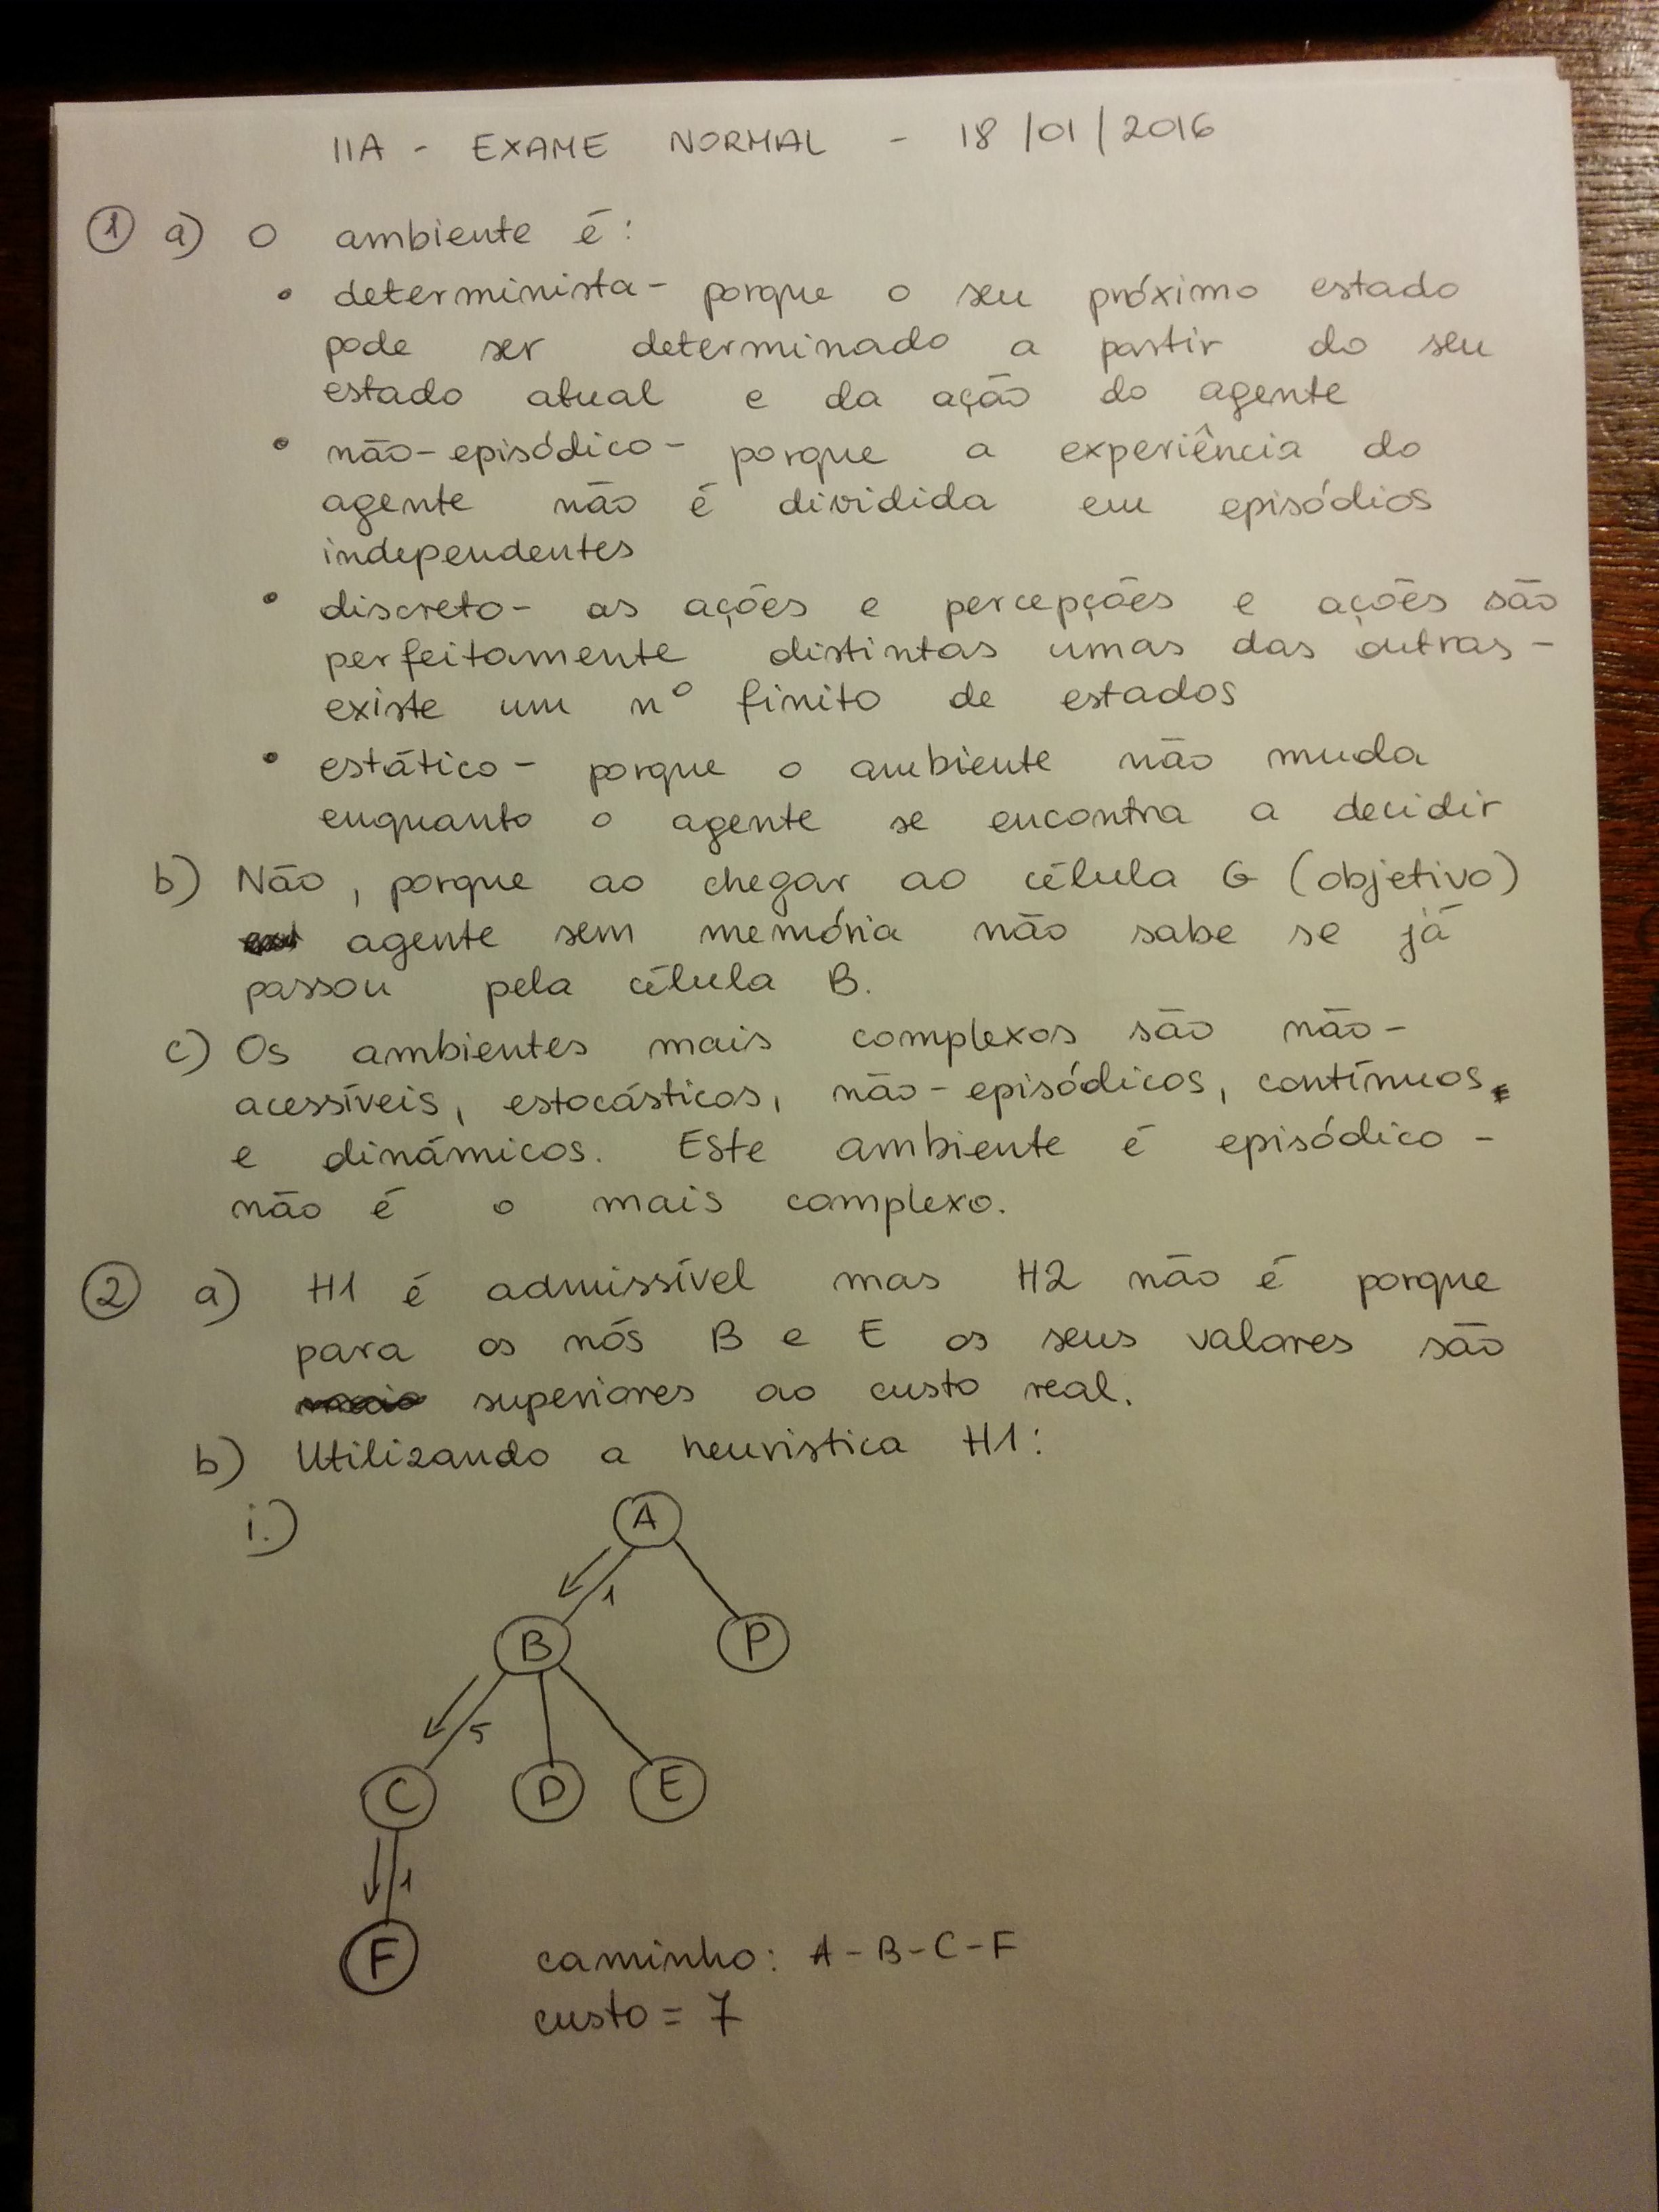 IIA - EXAME NORMAL - 18/01/2016
① a) O ambiente é:
• determinista - porque o seu próximo estado
pode ser determinado a partir do seu
estado atual e da ação do agente
• não-episódico - porque a experiência do
agente não é dividida em episódios
independentes
• discreto - as ações e percepções e ações são
perfeitamente distintas umas das outras -
existe um nº finito de estados
• estático - porque o ambiente não muda
enquanto o agente se encontra a decidir
b) Não, porque ao chegar ao célula G (objetivo)
agente sem memória não sabe se já
passou pela célula B.
c) Os ambientes mais complexos são não-
acessíveis, estocásticos, não-episódicos, contínuos
e dinâmicos. Este ambiente é episódico -
não é o mais complexo.
② a) H1 é admissível mas H2 não é porque
para os nós B e E os seus valores são
superiores ao custo real.
b) Utilizando a heurística H1:
i.)
A
1
B P
5
C D E
1
F
caminho: A-B-C-F
custo = 7